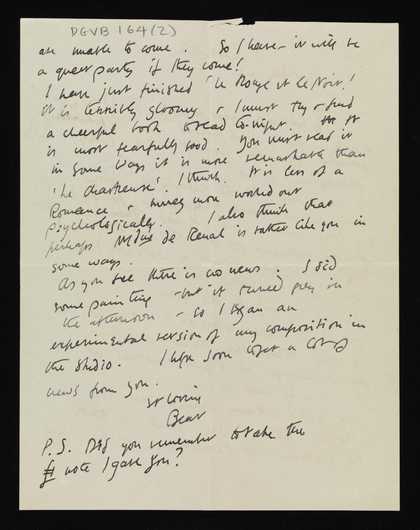 DGVB 164(2)
are unable to come. So I have - it will be
a queer party if they come!
I have just finished 'Le Rouge et le Noir'!
It is terribly gloomy & I must try & find
a cheerful book to read to-night. It
is most fearfully good. You must read it
in some ways it is more remarkable than
'La Chartreuse'. I think. It is less of a
Romance & much more worked out
psychologically. I also think that
perhaps Mdme de Renal is rather like you in
some ways.
As you see there is no news. I did
some painting - but it turned grey in
the afternoon - so I began an
experimental version of my composition in
the studio. I hope soon to get a
news from you.
Yr loving
Bear
P.S. Did you remember to take the
£1 note I gave you?